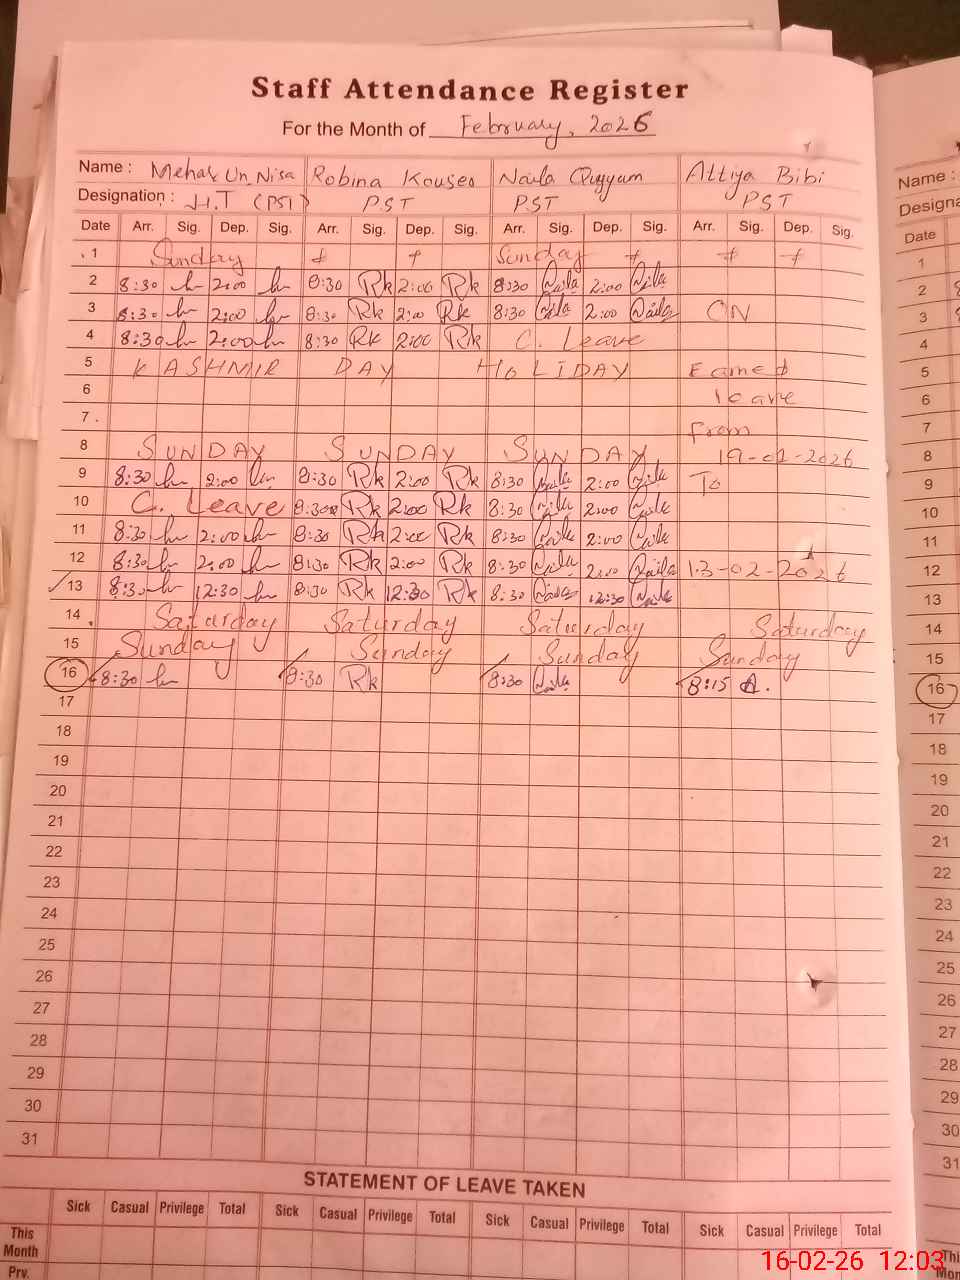 Staff Attendance Register
For the Month of February, 2026
Name : Mehak Un Nisa Robina Kouser Naila Quyyum Attiya Bibi
Designation : J.I.T (PST) PST PST PST
Date Arr. Sig. Dep. Sig. Arr. Sig. Dep. Sig. Arr. Sig. Dep. Sig. Arr. Sig. Dep. Sig.
1 Sunday Sunday
2 8:30 2:00 8:30 Rk 2:00 Rk 8:30 Naila 2:00 Naila
3 8:30 2:00 8:30 Rk 2:00 Rk 8:30 Naila 2:00 Naila ON
4 8:30 2:00 8:30 Rk 2:00 Rk C. Leave
5 KASHMIR DAY HOLIDAY Earned
6 leave
7 from
8 SUNDAY SUNDAY SUNDAY 19-01-2026
9 8:30 2:00 8:30 Rk 2:00 Rk 8:30 Naila 2:00 Naila To
10 C. Leave 8:30 Rk 2:00 Rk 8:30 Naila 2:00 Naila
11 8:30 2:00 8:30 Rk 2:00 Rk 8:30 Naila 2:00 Naila
12 8:30 2:00 8:30 Rk 2:00 Rk 8:30 Naila 2:00 Naila 13-02-2026
13 8:30 12:30 8:30 Rk 12:30 Rk 8:30 Naila 12:30 Naila
14 Saturday Saturday Saturday Saturday
15 Sunday Sunday Sunday Sunday
16 8:30 8:30 Rk 8:30 Naila 8:15 A.
17
18
19
20
21
22
23
24
25
26
27
28
29
30
31
STATEMENT OF LEAVE TAKEN
Sick Casual Privilege Total Sick Casual Privilege Total Sick Casual Privilege Total Sick Casual Privilege Total
This Month
Prv.
Name :
Designa
Date
1
2
3
4
5
6
7
8
9
10
11
12
13
14
15
16
17
18
19
20
21
22
23
24
25
26
27
28
29
30
31
Thi
Mon
16-02-26 12:03